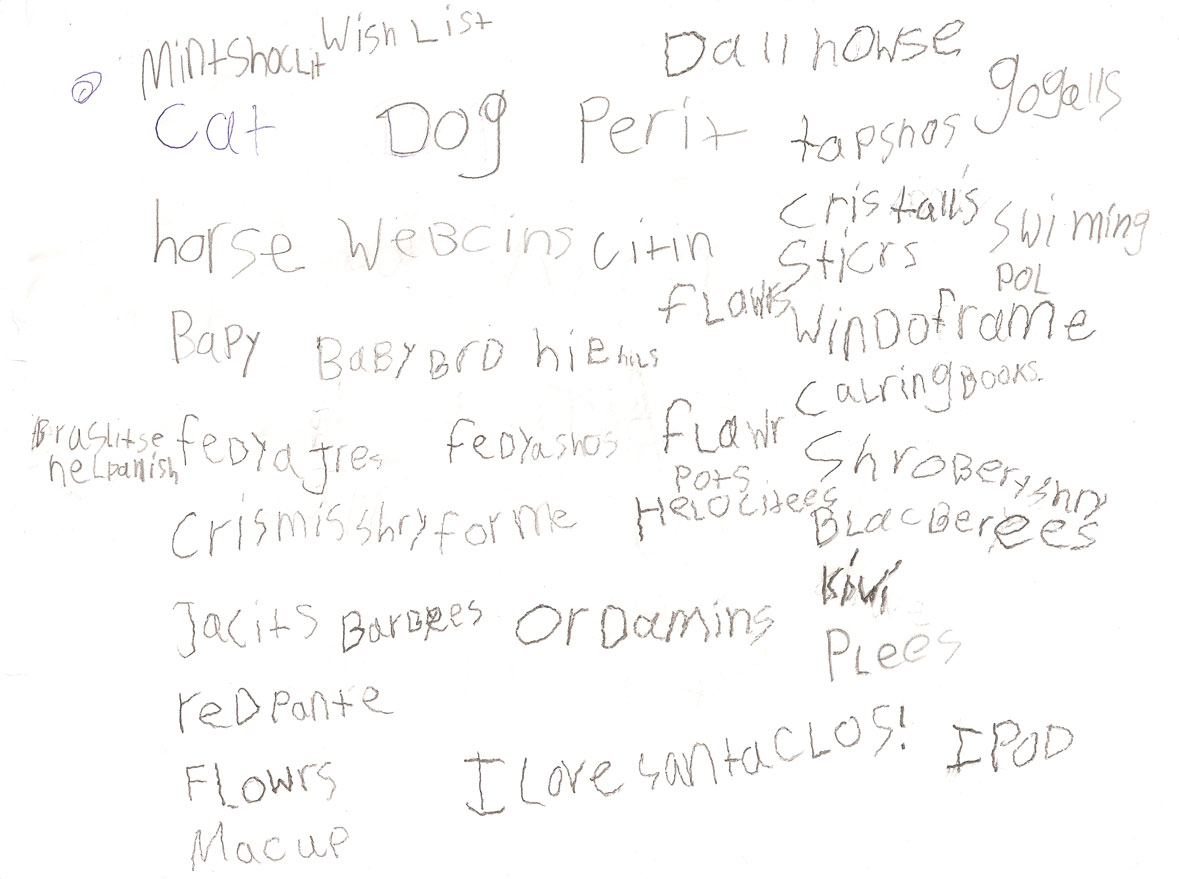 Wish List
Mintshoclit
Dall howse
gogalls
Cat Dog Perit
tapshos
horse WeBcins citin
cristalls
sticrs
swiming
POL
Bapy BaBy BrD hie hils
fLawrs
WinDoframe
calringBOOKS.
Braslitse
helpanish
feDya jres feDyashos
fLawr
POTS
ShroBeryshry
Crismisshry for me
HeLOcitees
BLacBerees
kiwi
Jacits Barbees OrDamins
PLees
reD pante
FLowrs
I Love santa CLOS!
IPOD
Macup